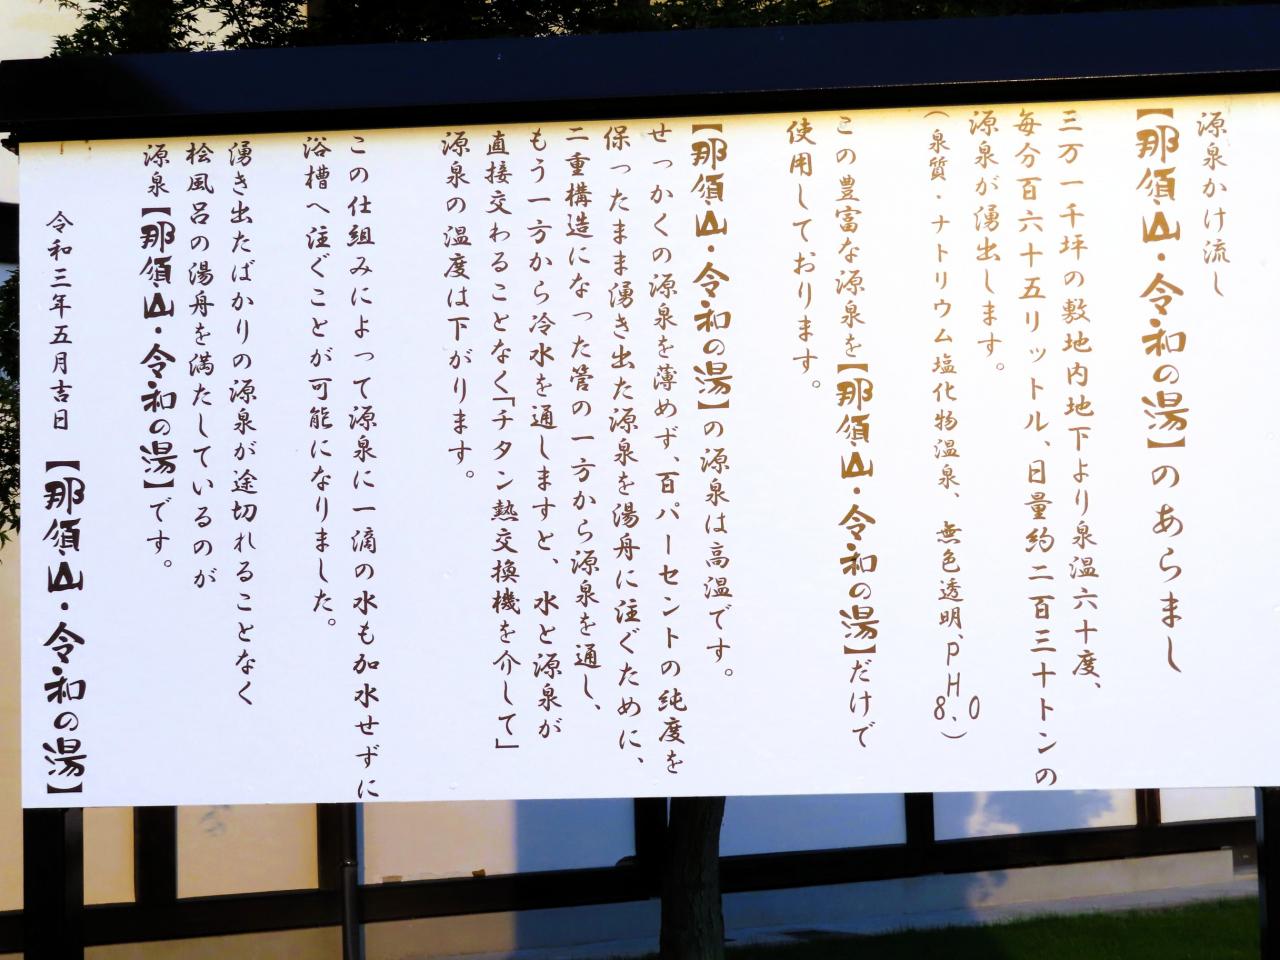 源泉かけ流し
【那須山・令和の湯】のあらまし
三万一千坪の敷地内地下より泉温六十度、
毎分百六十五リットル、日量約二百三十トンの
源泉が湧出します。
（泉質・ナトリウム塩化物温泉、無色透明、pH8.0）
この豊富な源泉を【那須山・令和の湯】だけで
使用しております。
【那須山・令和の湯】の源泉は高温です。
せっかくの源泉を薄めず、百パーセントの純度を
保ったまま湧き出た源泉を湯舟に注ぐために、
二重構造になった管の一方から源泉を通し、
もう一方から冷水を通しますと、水と源泉が
直接交わることなく「チタン熱交換機を介して」
源泉の温度は下がります。
この仕組みによって源泉に一滴の水も加水せずに
浴槽へ注ぐことが可能になりました。
湧き出たばかりの源泉が途切れることなく
桧風呂の湯舟を満たしているのが
源泉【那須山・令和の湯】です。
令和三年五月吉日　【那須山・令和の湯】